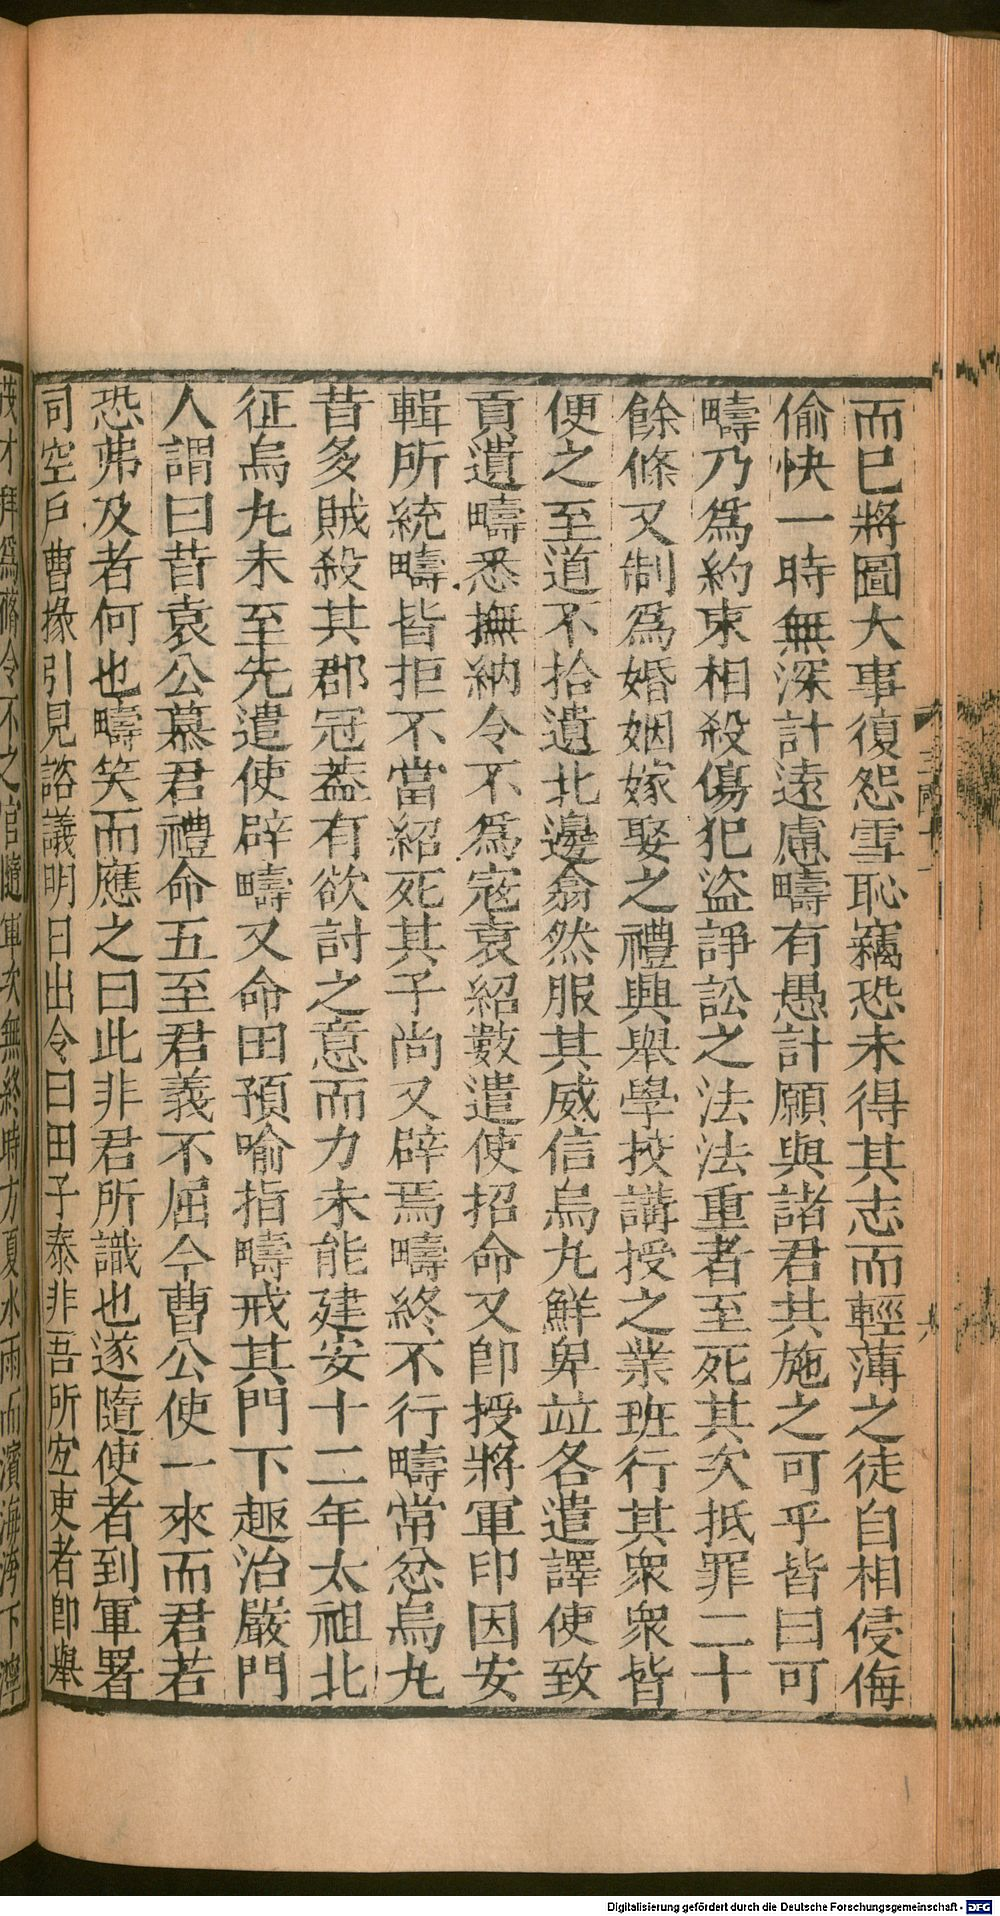 而已將圖大事復怨雪恥竊恐未得其志而輕薄之徒自相侵侮
偷快一時無深計遠慮疇有愚計願與諸君共施之可乎皆曰可
疇乃爲約束相殺傷犯盜諍訟之法法重者至死其次抵罪二十
餘條又制爲婚姻嫁娶之禮興舉學挍講授之業班行其衆衆皆
便之至道不拾遺北邊翕然服其威信烏丸鮮卑竝各遣譯使致
貢遺疇悉撫納令不爲寇袁紹數遣使招命又即授將軍印因安
輯所統疇皆拒不當紹死其子尚又辟焉疇終不行疇常忿烏丸
昔多賊殺其郡冠蓋有欲討之意而力未能建安十二年太祖北
征烏丸未至先遣使辟疇又命田預喻指疇戒其門下趣治嚴門
人謂曰昔袁公慕君禮命五至君義不屈今曹公使一來而君若
恐弗及者何也疇笑而應之曰此非君所識也遂隨使者到軍署
司空戶曹掾引見諮議明日出令曰田子泰非吾所宜吏者即舉
茂才拜爲蓨令不之官隨軍次無終時方夏水雨而濱海洿下濘
Digitalisierung gefördert durch die Deutsche Forschungsgemeinschaft - DFG